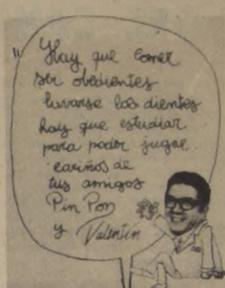 "Hay que comer
ser obedientes
lavarse los dientes
hay que estudiar
para poder jugar
cariños de
tus amigos
Pin Pon
y Valentín